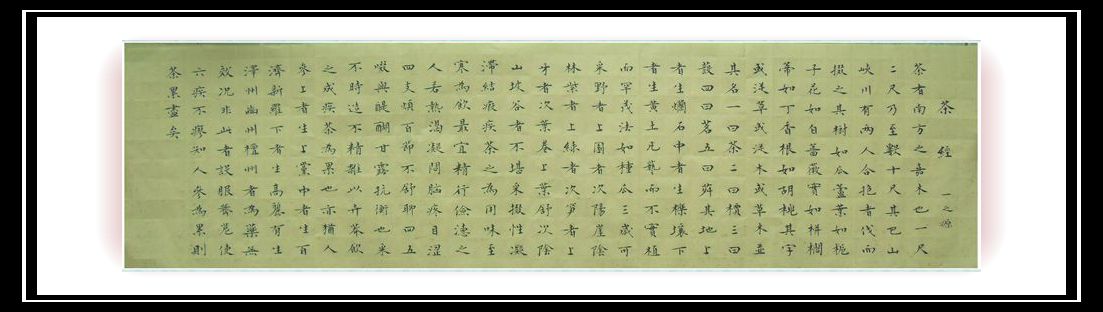 茶經 一之源
茶者南方之嘉木也一尺
二尺乃至數十尺其巴山
峽川有兩人合抱者伐而
掇之其樹如瓜蘆葉如梔
子花如白薔薇實如栟櫚
蒂如丁香根如胡桃其字
或從草或從木或草木並
其名一曰茶二曰檟三曰
蔎四曰茗五曰荈其地上
者生爛石中者生櫟壤下
者生黃土凡藝而不實植
而罕茂法如種瓜三歲可
采野者上園者次陽崖陰
林紫者上綠者次筍者上
牙者次葉卷上葉舒次陰
山坡谷者不堪采掇性凝
滯結瘕疾茶之為用味至
寒為飲最宜精行儉德之
人若熱渴凝悶腦疼目澀
四支煩百節不舒聊四五
啜與醍醐甘露抗衡也采
不時造不精雜以卉莽飲
之成疾茶為累也亦猶人
參上者生上黨中者生百
濟新羅下者生高麗有生
澤州幽州檀州者為藥無
效況非此者設服薺苨使
六疾不瘳知人參為累則
茶累盡矣